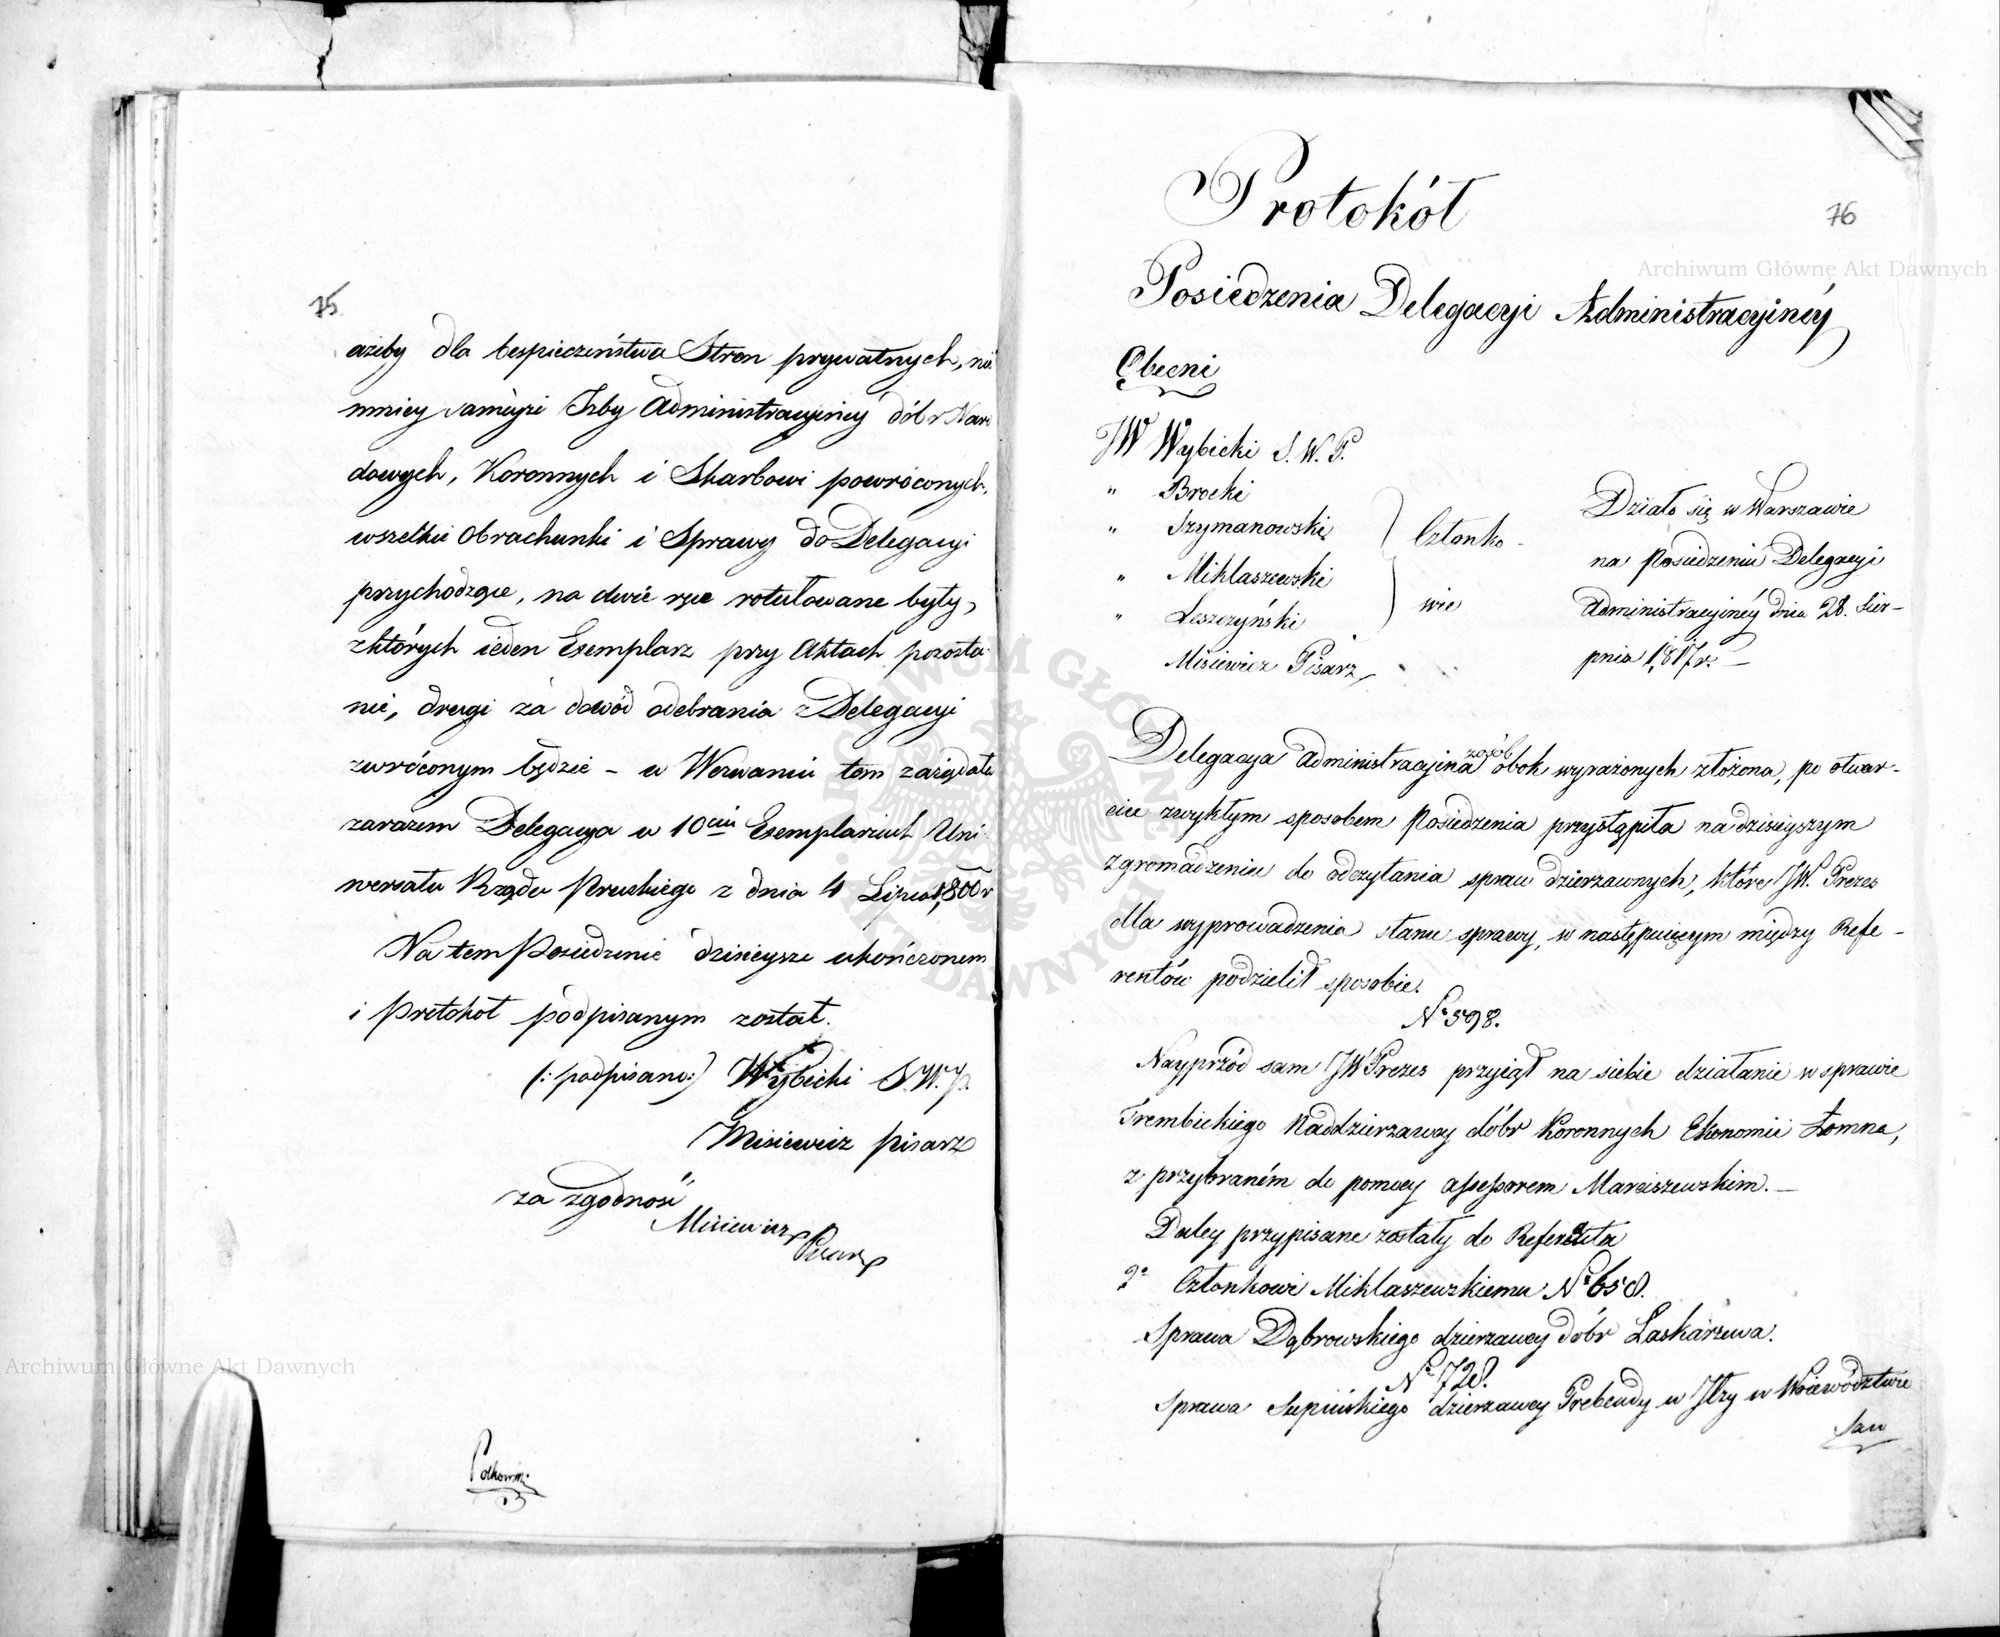 75.
ażeby dla bespieczeństwa Stron prywatnych, nie
mniey samеyże Izby Administracyiney dóbr Naro
dowych, Koronnych i Skarbowi powróconych,
wszelkie Obrachunki i Sprawy do Delegacyi
przychodzące, na dwie ręce rotułowane były,
z których ieden Exemplarz przy Aktach pozosta
nie, drugi za dowód odebrania z Delegacyi
zwróconym będzie – w Wezwaniu tem zażądała
zarazem Delegacya w 10ciu Exemplarzach Uni
wersału Rządu Pruskiego z dnia 4 Lipca 1,800 r
Na tem Posiedzenie dzisieysze ukończonem
i Protokół podpisanym został.
(: podpisano:) Wybicki S.W.P.
Misiewicz Pisarz
za zgodność
Misiewicz Pisarz
Archiwum Główne Akt Dawnych
76
Protokół
Archiwum Główne Akt Dawnych
Posiedzenia Delegacyi Administracyiney
Obecni
JW Wybicki S. W. P.
" Brocki
" Szymanowski
" Miklaszewski
" Leszczyński
Misiewicz Pisarz
Członko-
wie
Działo się w Warszawie
na Posiedzeniu Delegacyi
Administracyiney dnia 28. Sier-
pnia 1,817 r. –
Delegacya Administracyina z osób obok wyrażonych złożona, po otwar-
ciu zwykłym sposobem Posiedzenia przystąpiła na dzisieyszym
zgromadzeniu do odczytania spraw dzierzawnych, które JW. Prezes
dla wyprowadzenia stanu sprawy, w następuiącym między Refe-
rentów podzielił sposobie.
No 598.
Nayprzód sam JW Prezes przyiął na siebie działanie w sprawie
Trembickiego Naddzierzawcy dóbr Koronnych Ekonomii Łomna,
z przybraniem do pomocy assessorem Marciszewskim. –
Daley przypisane zostały do Referatu
Członkowi Miklaszewskiemu No 658.
Sprawa Dąbrowskiego dzierzawcy dóbr Laskarzewa.
No 728.
Sprawa Supińskiego dzierzawcy Prebendy w Iłży w Woiewództwie
San
ARCHIWUM GŁÓWNE AKT DAWNYCH